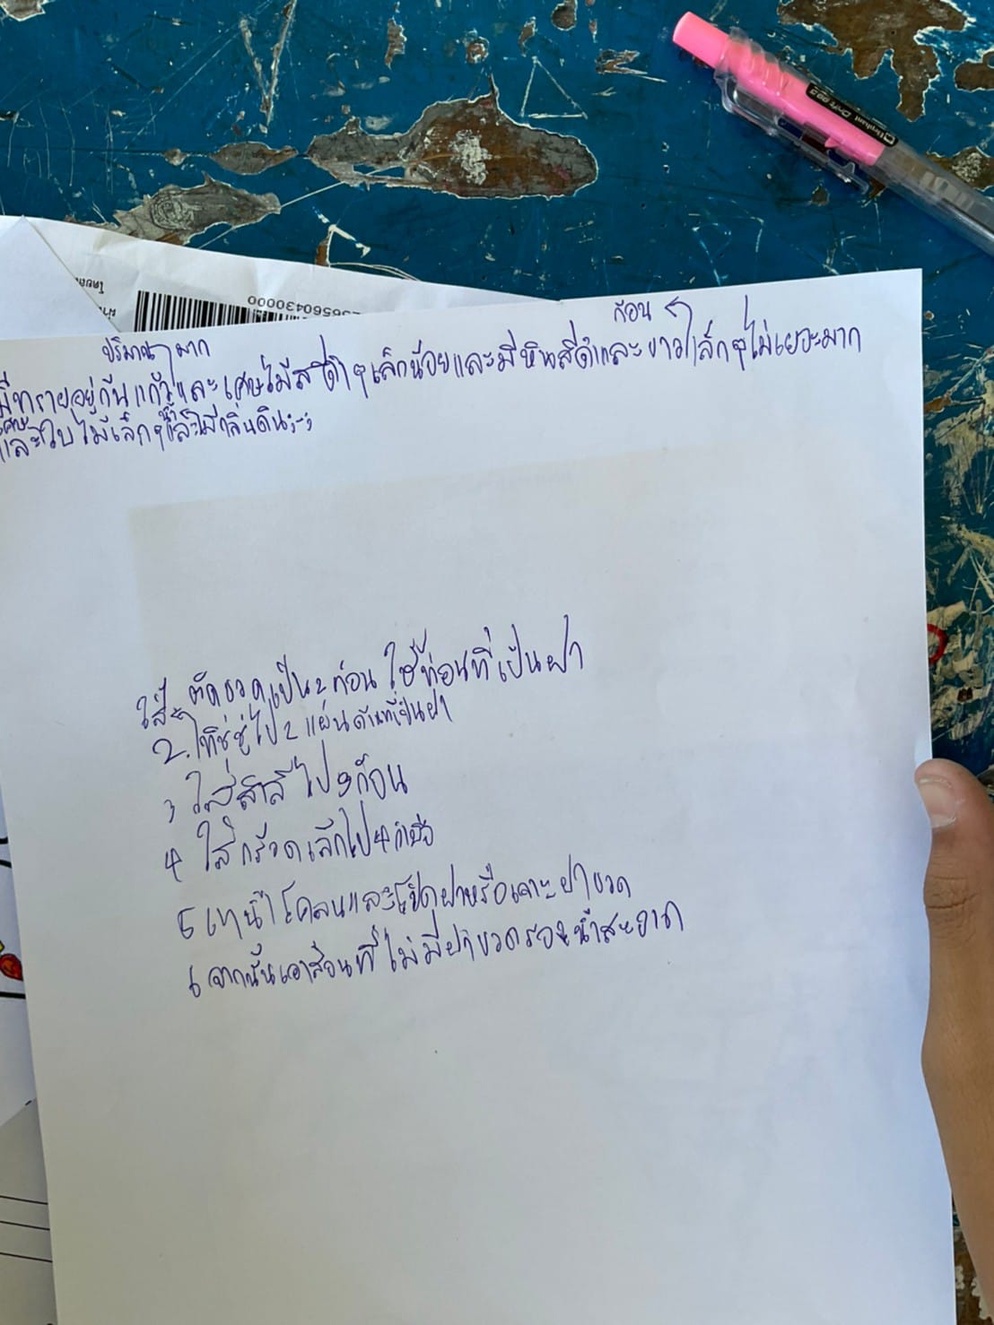 Elephant
ปริมาณมาก
ก้อน
มีทรายอยู่ก้นแก้วและเศษไม้สีดำๆเล็กน้อยและมีหินสีดำและขาวเล็กๆไม่เยอะมาก
และเศษใบไม้เล็กๆน้ำมีกลิ่นดิน;-;
ตัดขวดเป็น2ท่อน ใช้ท่อนที่เป็นฝา
2. ทิชชู่ไป2แผ่นด้านที่เป็นฝา
3 ใส่สำลีไป3ก้อน
4 ใส่กรวดเล็กไป4กำมือ
5 เทน้ำโคลนและเปิดฝาหรือเจาะฝาขวด
6 จากนั้นเอาส่วนที่ไม่มีฝาขวดรองน้ำสะอาด